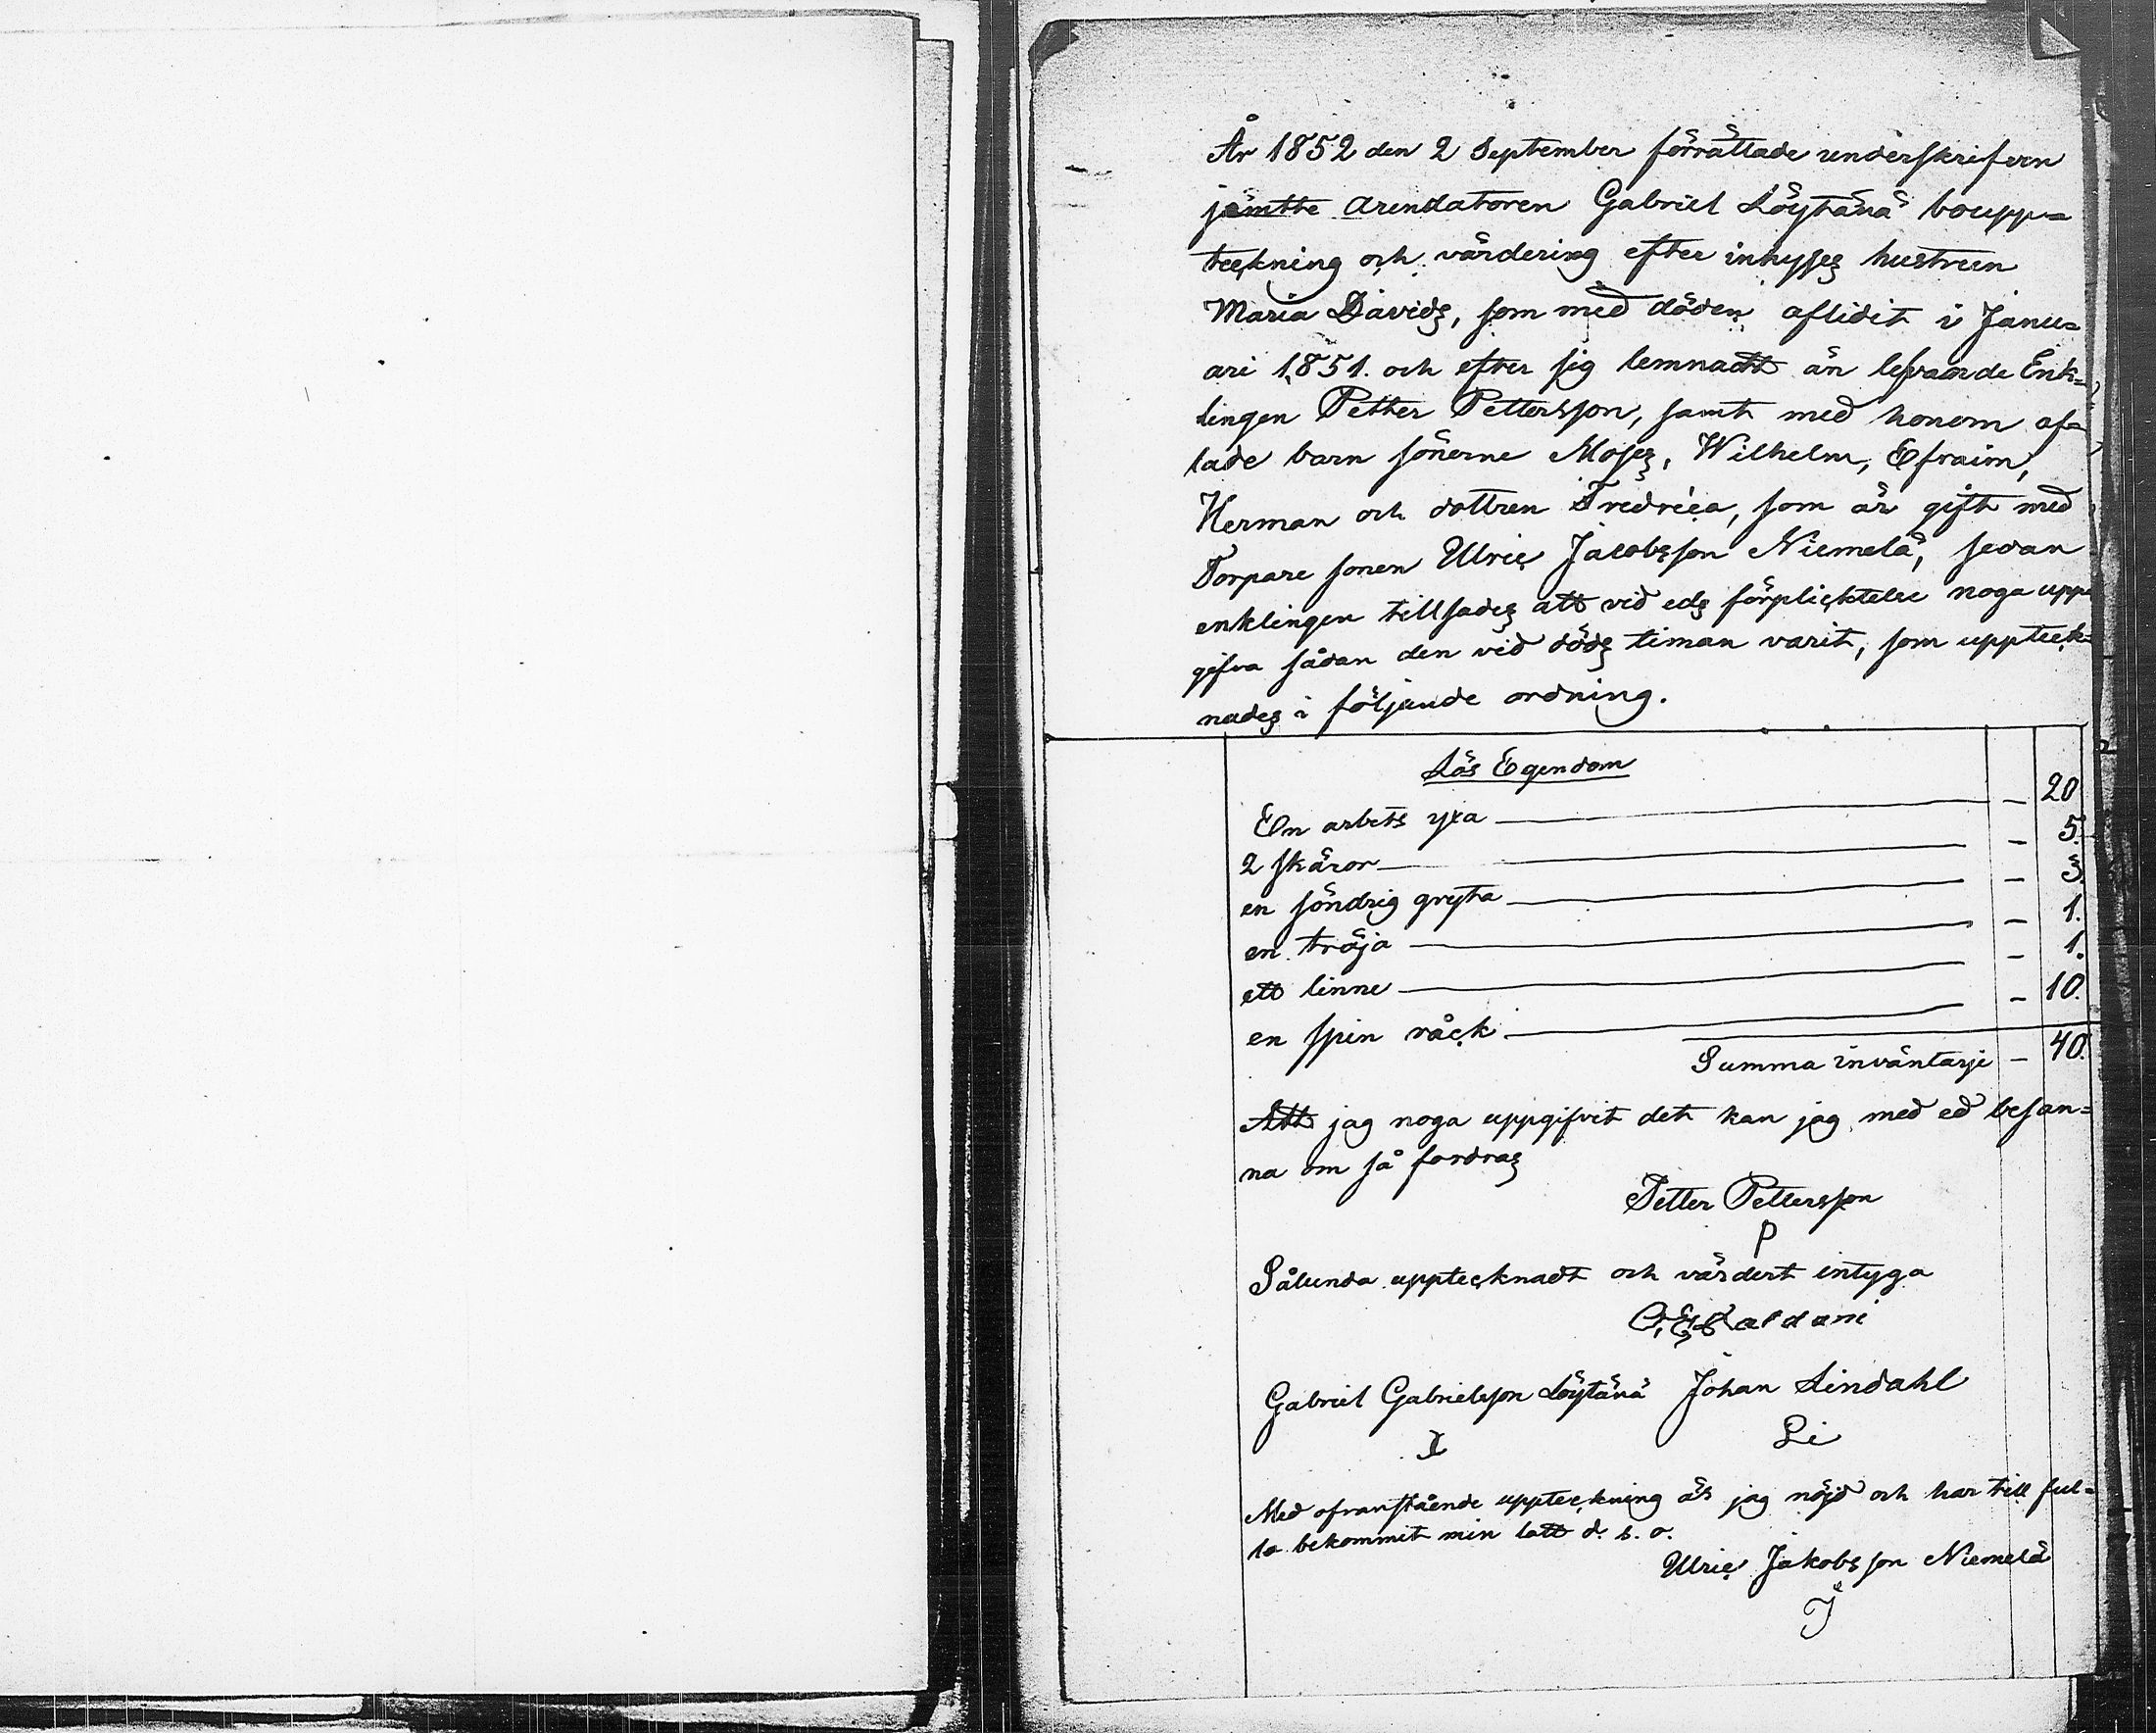 År 1852 den 2 September förrättade underskrifven
jämtte arendatoren Gabriel Löytänä boupp=
teckning och värdering efter inhyses hustrun
Maria Davids, som med döden aflidit i Janu=
ari 1851. och efter sig lemnadt än lefvande Enk=
lingen Petter Pettersson, samt med honom af=
lade barn sönerne Moses, Wilhelm, Efraim,
Herman och dottren Fredrica, som är gift med
Torpare sonen Ulric Jacobsson Niemelä, sedan
enklingen tillsades att vid eds förplicktelse noga upp
gifva sådan den vid döds timan varit, som uppteck=
nades i följande ordning.
Lös Egendom
En arbets yxa — 20
2 skäror — 5.
en söndrig gryta — 3.
en tröja — 1.
ett linne — 1.
en spin råck — 10.
Summa inväntarje — 40.
Att jag noga uppgifvit det kan jag med ed besan=
na om så fordras
Petter Pettersson
P
Sålunda upptecknadt och värdert intyga
Gabriel Gabrielsson Löytänä Johan Lindahl
Li
Med ofvanstående uppteckning är jag nöjd och har till ful=
la bekommit min latt d. s. o.
Ulric Jakobsson Niemelä
J